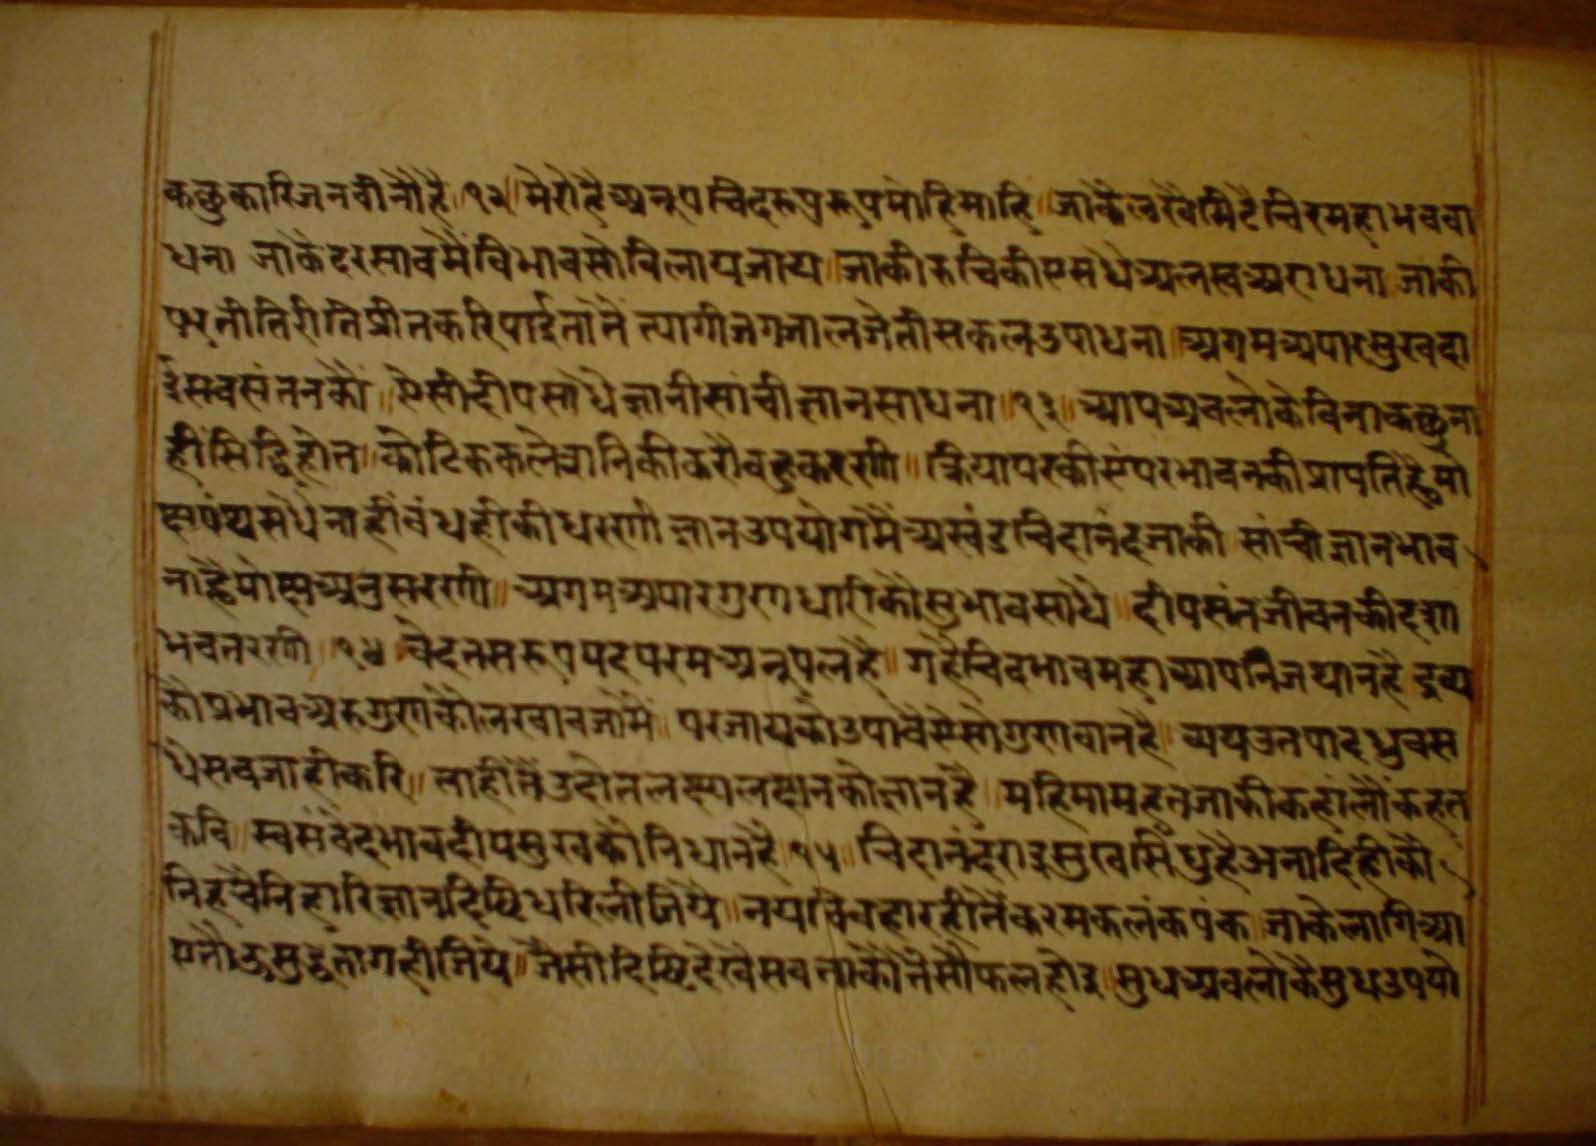 कछुकारिजनवीनौहै॥१२॥मेरोहैअनूपचिदरूपरूपमोहिमाहि॥जाकेलखेमिटैचिरमहाभवबा
धना जाकेदरसावमेंविभावसोविलायजाय॥जाकीरुचिकीएसधेअलखअराधना जाकी
परतीतिरीतिप्रीतकरिपाईतातें त्यागीजगजालजेतीसकलउपाधना॥अगमअपारसुखदा
ईसबसंतनकौं॥ऐसीदीपसाधेज्ञानीसांचीज्ञानसाधना॥१३॥आपअवलोकेविनाकछुना
हींसिद्धिहोत॥कोटिककलेशनिकीकरौबहुकरणी॥क्रियापरकीएंपरभावनकीप्रापतिह्वैमो
क्षपंथसधेनाहींबंधहीकीधरणी ज्ञानउपयोगमैंअखंडचिदानंदजाकी सांचीज्ञानभाव
नाह्वैमोक्षअनुसरणी॥अगमअपारगुणधारीकौसुभावसाधे॥दीपसंतजीवनकीदशा
भवतरणी॥१४॥वेदतसरूपपदपरमअनूपलहै॥गहैचिदभावमहाआपनिजथानहै द्रव्य
कौप्रभावअरुगुणकौलखावजामें॥परजायकोउपावैऐसोगुणवानहै॥व्ययउतपादध्रुवस
धेसबजाहीकरि॥ताहीतेंउदोतलक्ष्यलक्षनकोज्ञानहै॥महिमामहतजाकीकहांलौंकहत
कवि॥स्वसंवेदभावदीपसुखकौनिधानहै॥१५॥चिदानंदराइसुखसिंधुहैअनादिहीकौ
निहचैनिहारिज्ञानदिष्टिधरिलीजियै॥नयविवहारहीतेंकरमकलंकपंक॥जाकेलागिआ
एतौऊसुद्धतागहीजिये॥जैसीदिष्टिदेखैसबताकौतैसौफलहोइ॥सुधअवलोकैसुधउपयो